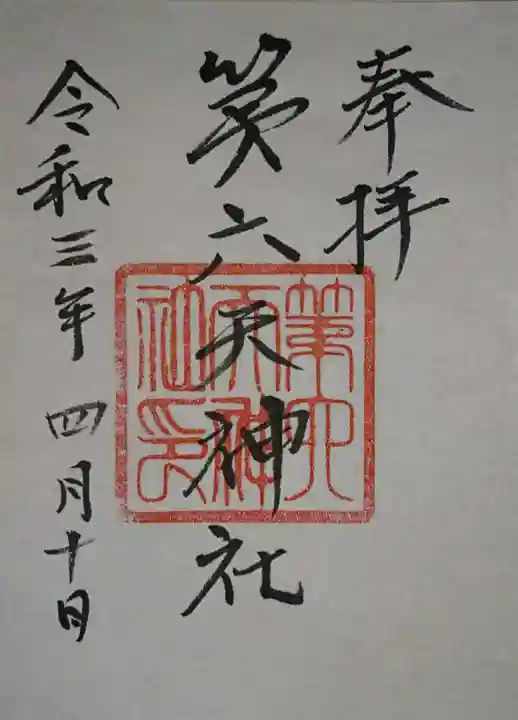 奉拝
第六天神社
第六天神社印
令和三年 四月十日